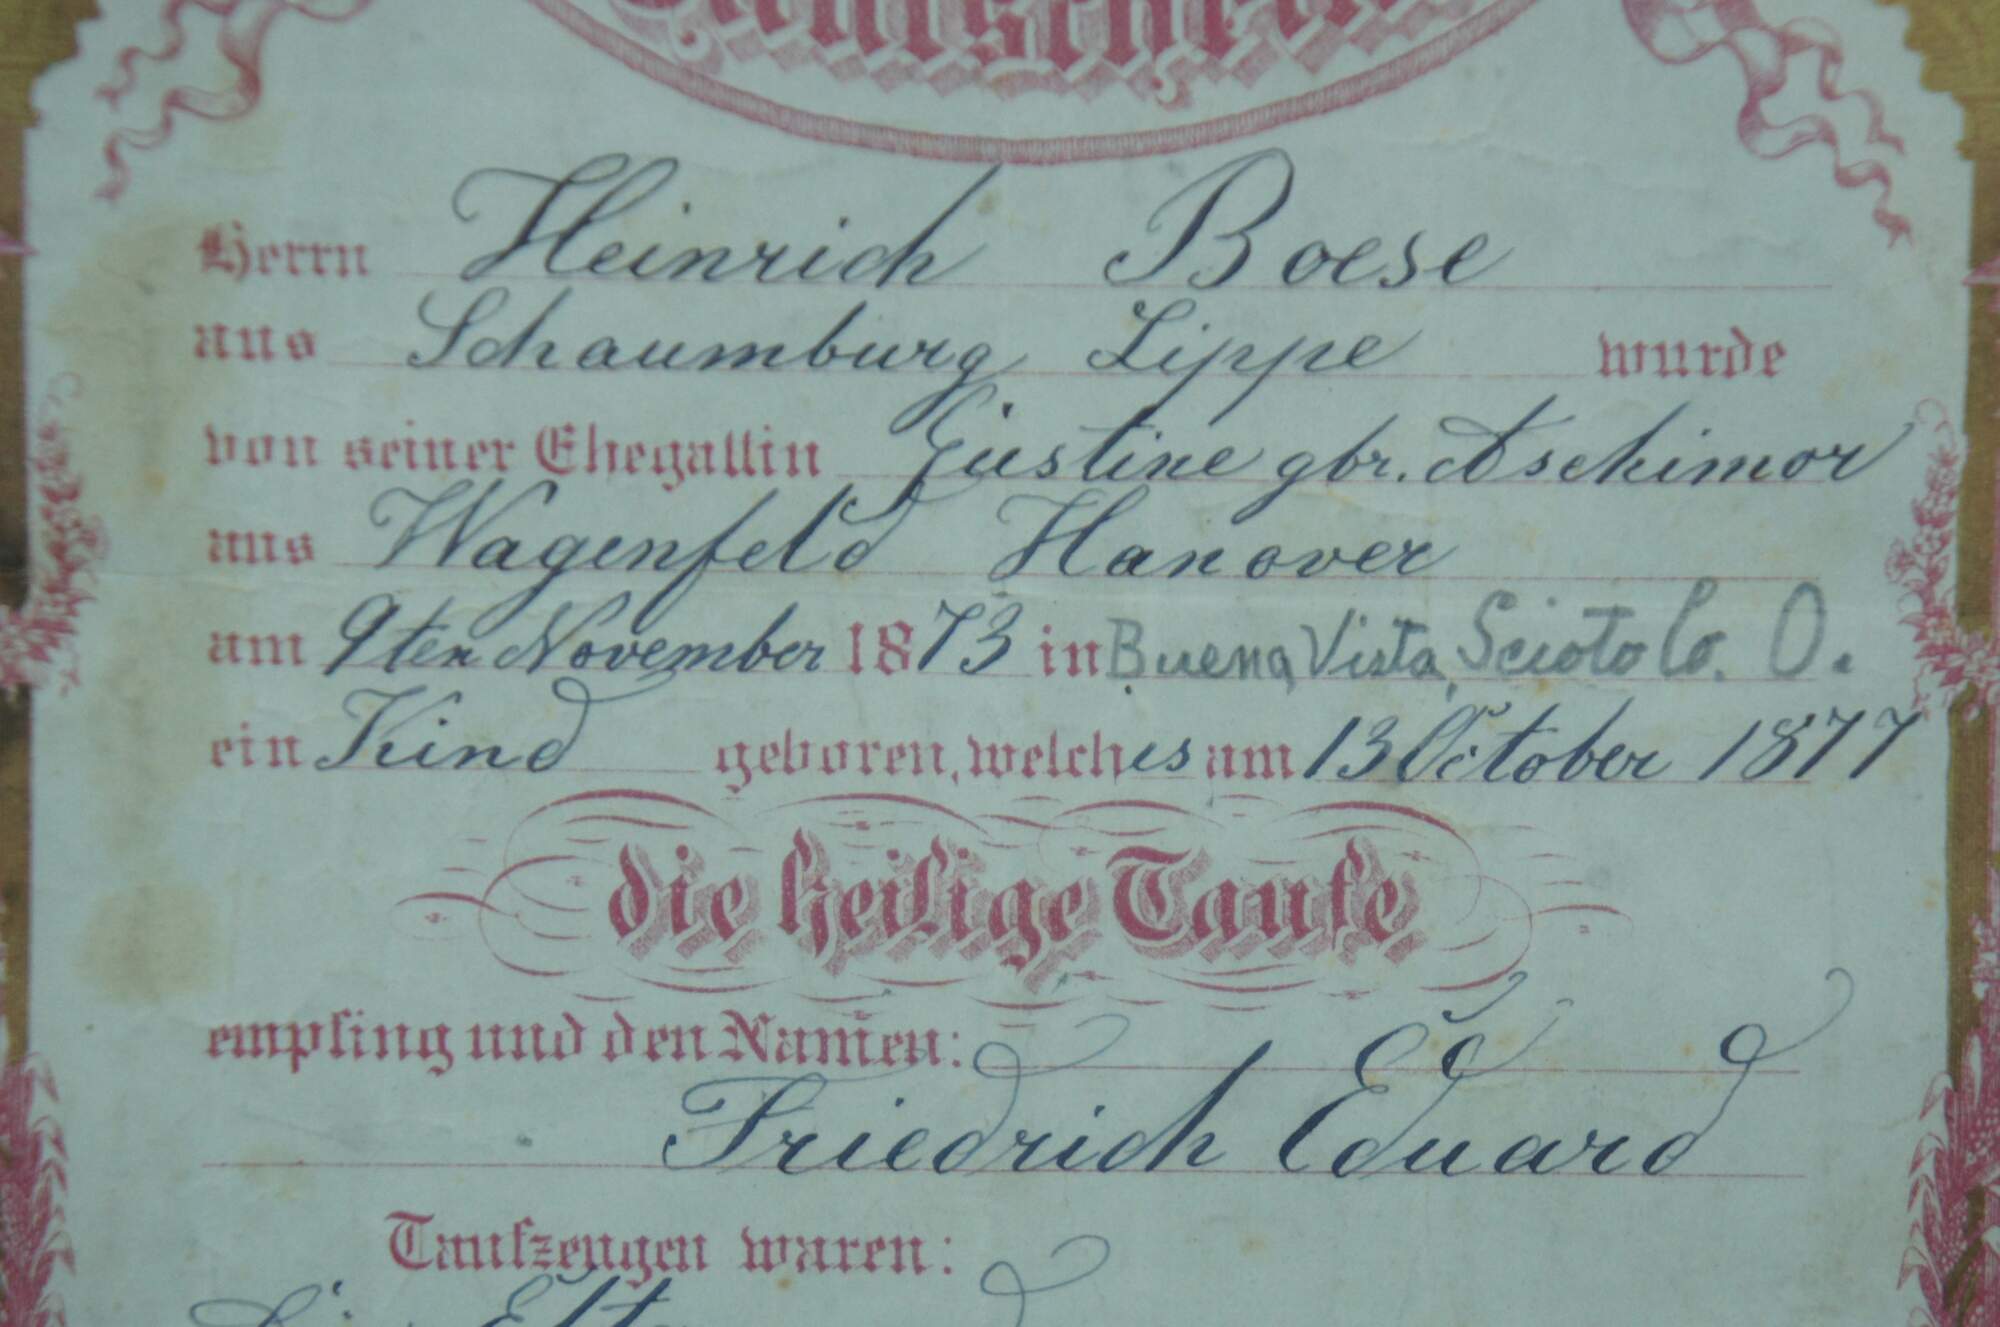 Taufschein
Herrn Heinrich Boese
aus Schaumburg Lippe wurde
von seiner Ehegattin Justine gbr. Aschimor
aus Wagenfeld Hanover
am 9ten November 1873 in Buena Vista, Scioto Co. O.
ein Kind geboren, welches am 13 October 1877
die heilige Taufe
empfing und den Namen:
Friedrich Eduard
Taufzeugen waren: